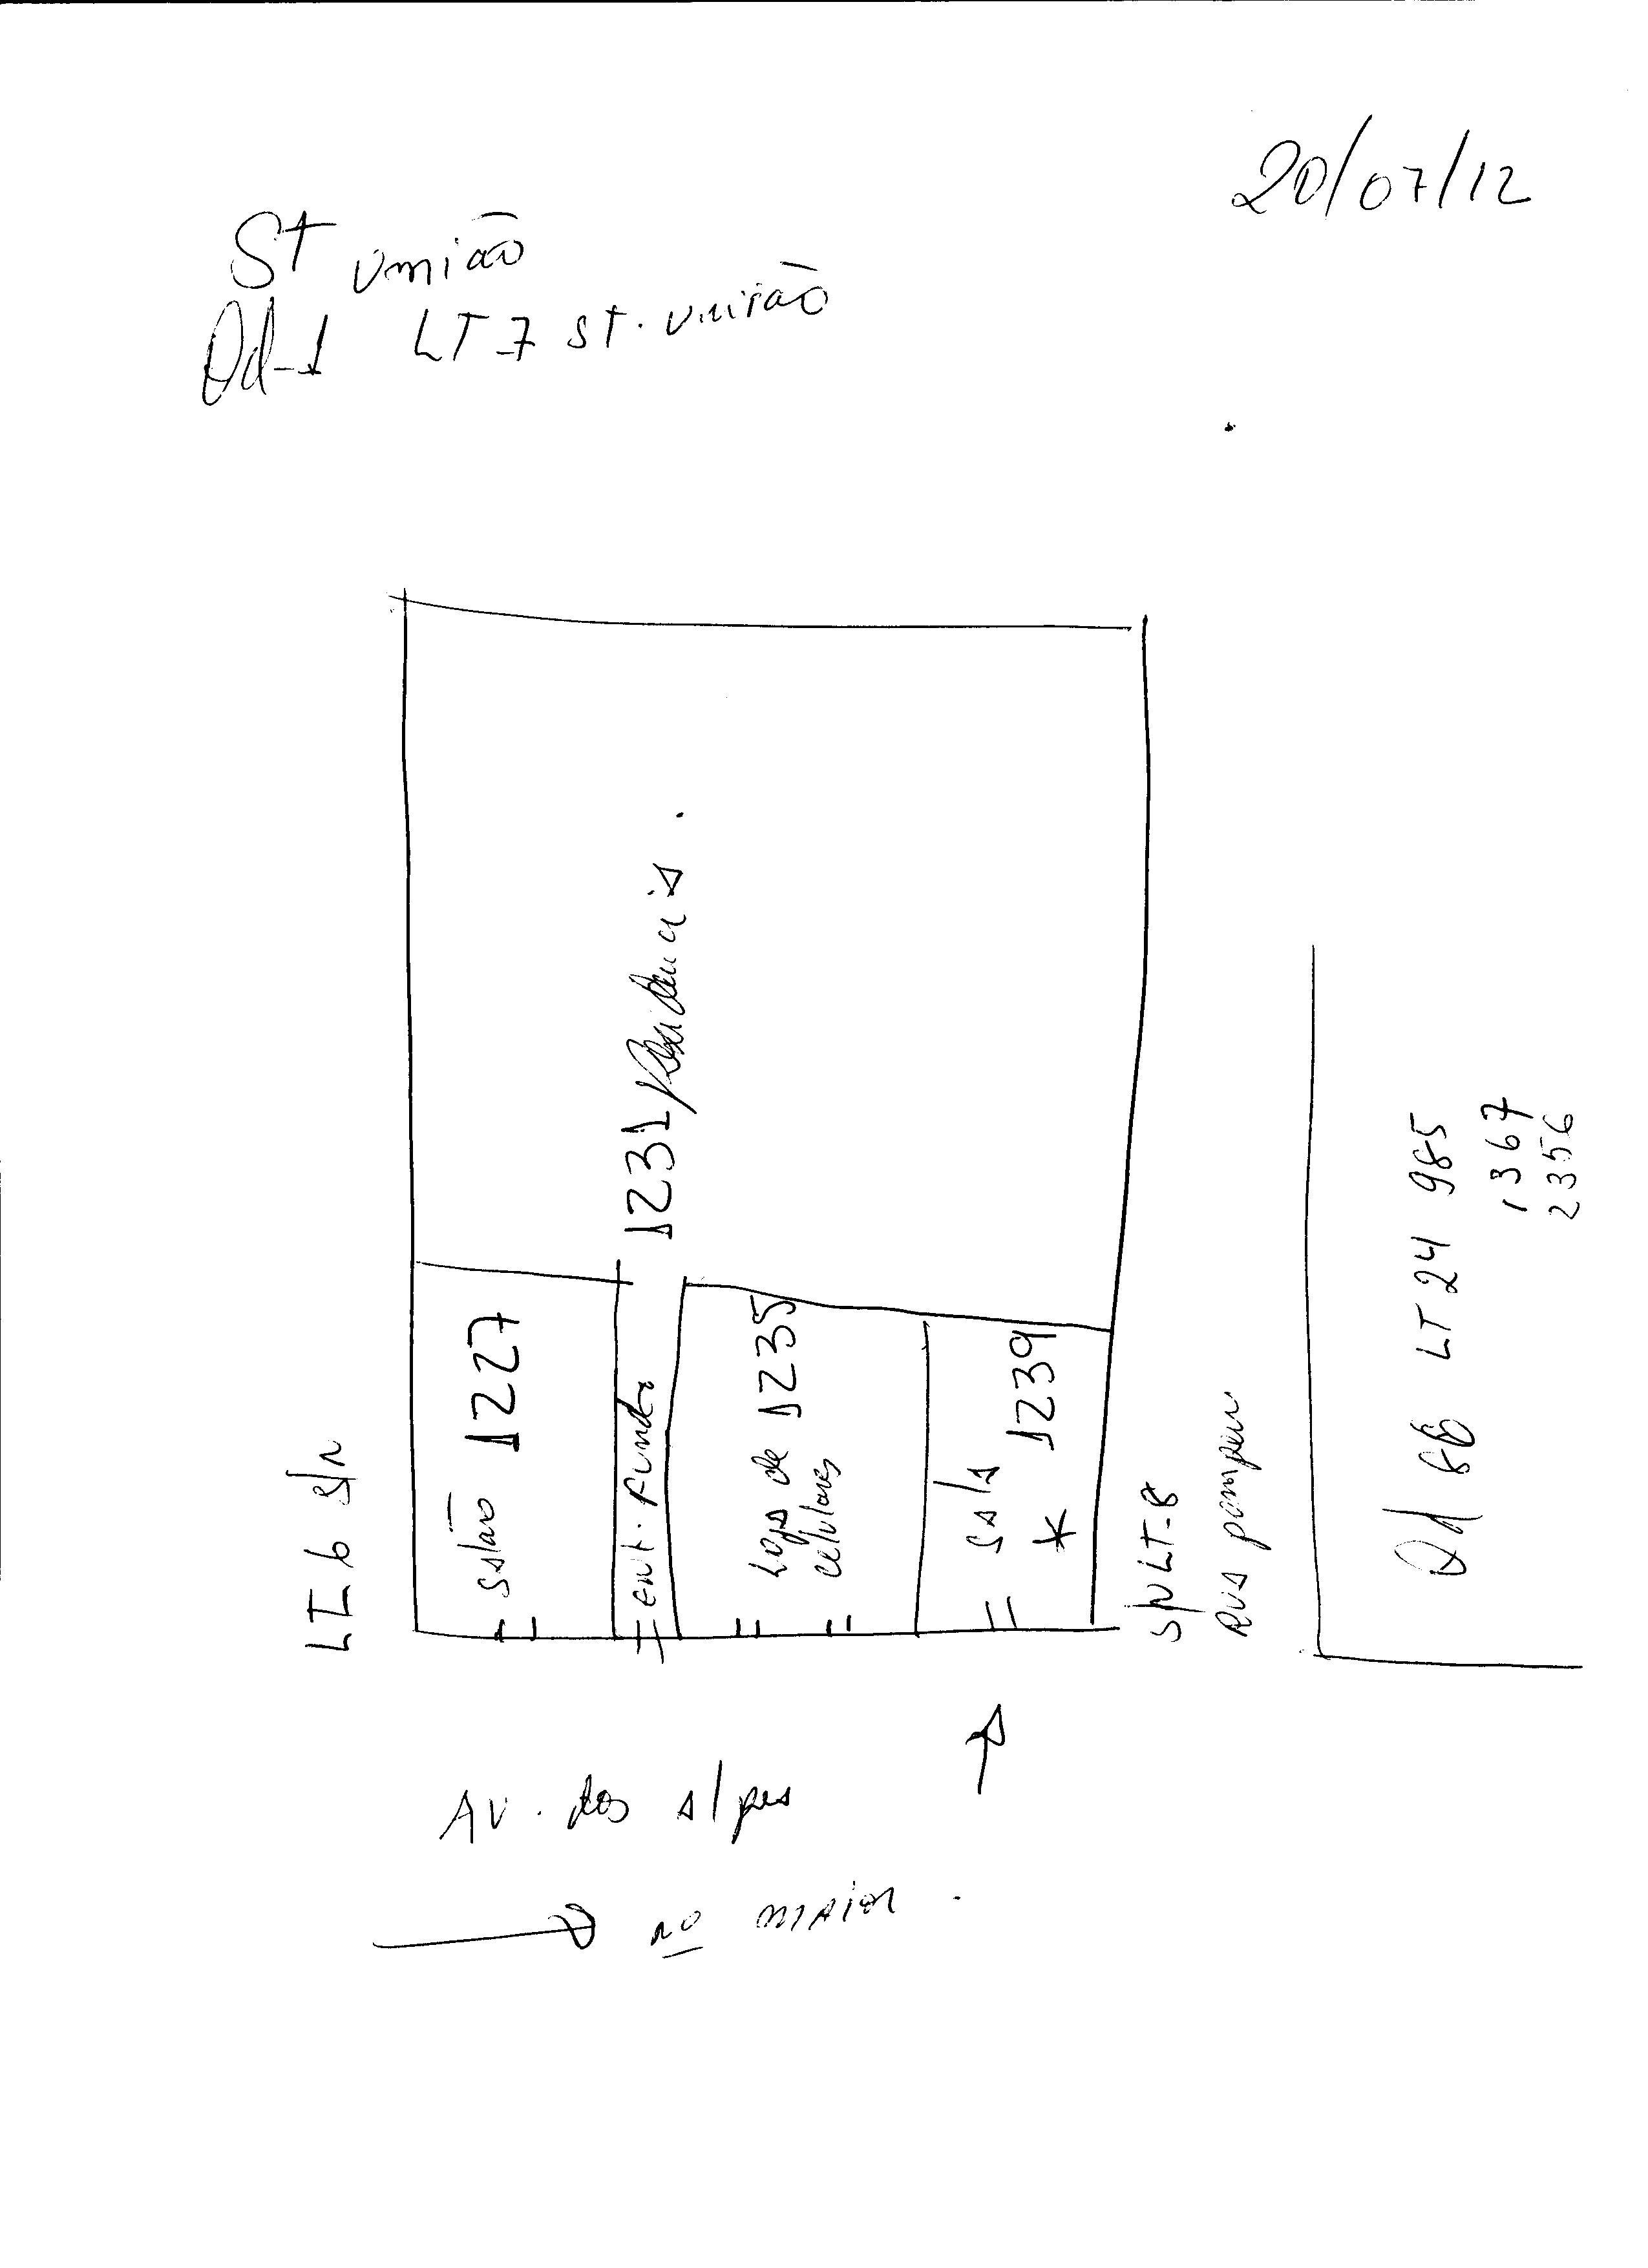 20/07/12
St União
Qd-1 LT-7 St. União
1231 Residencia.
LT 6 s/n
salão 1227
ent. fundo
Loja de 1235
celulares
sala
* 1239
S/N LT-8
Rua pompeu
Qd LT 24 985
1367
2356
AV. dos alpes
nº maior.